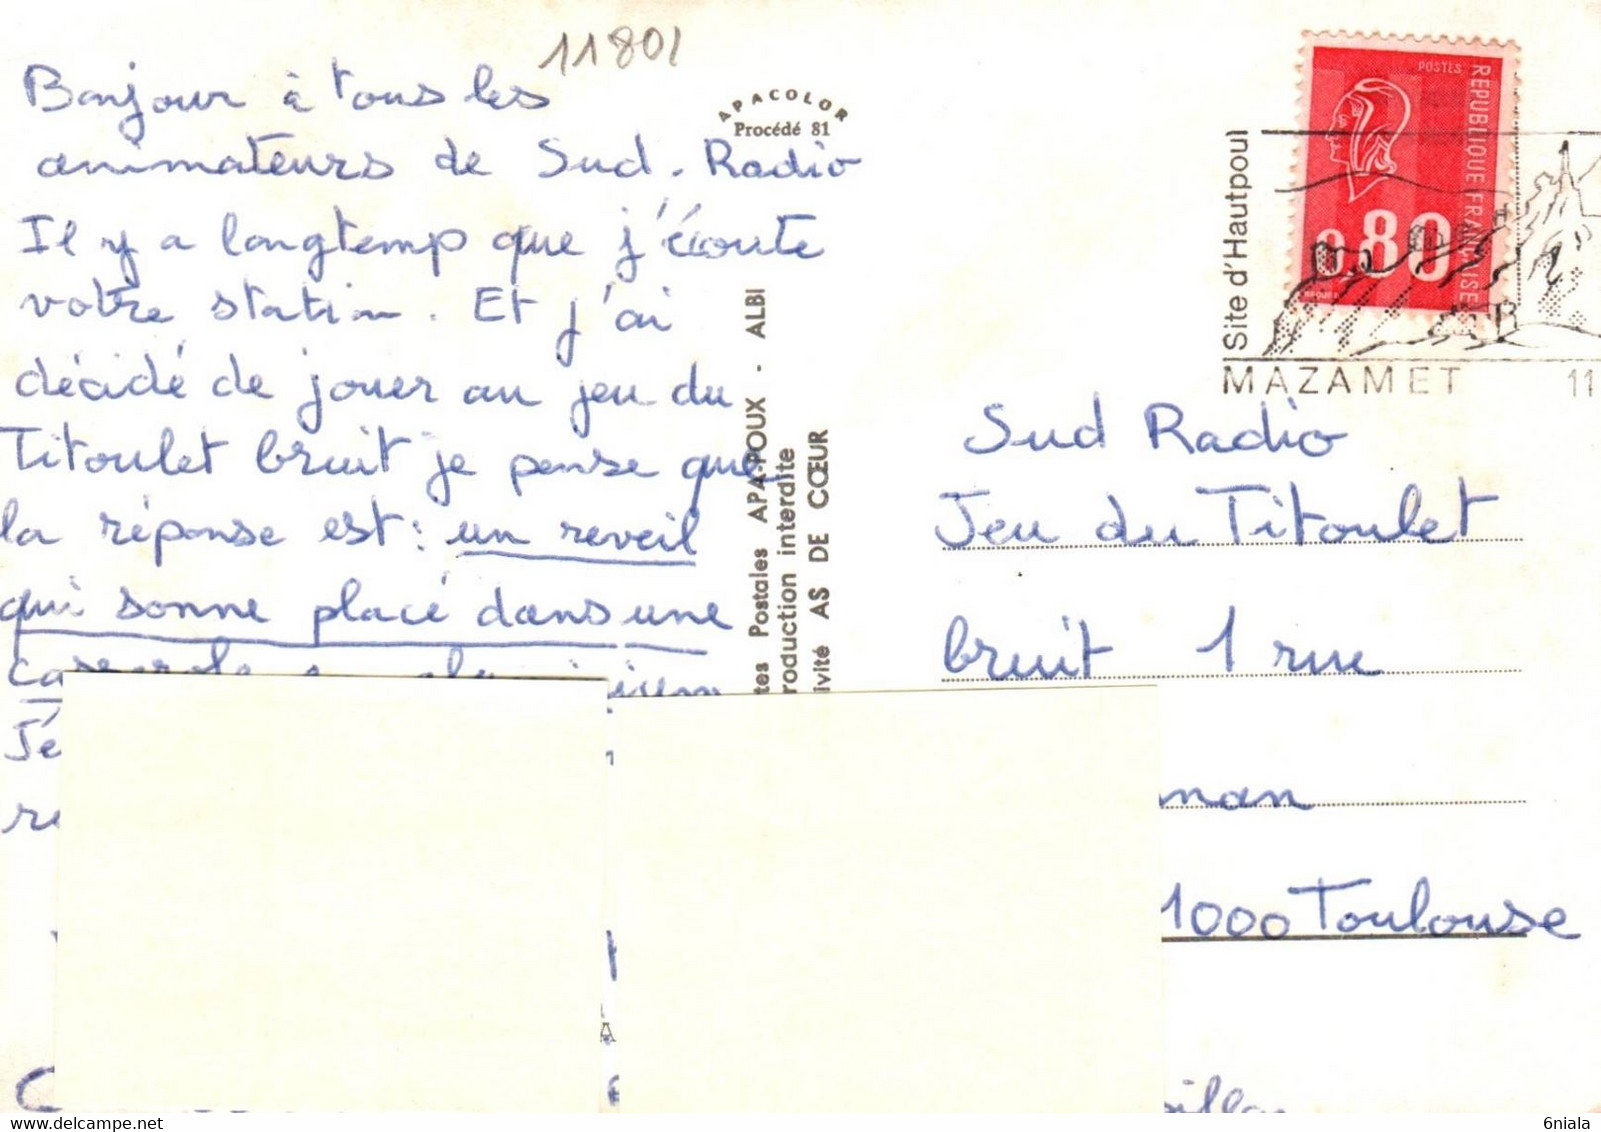 11801
Bonjour à tous les
animateurs de Sud. Radio
Il y a longtemp que j'écoute
votre station. Et j'ai
décidé de jouer au jeu du
Titoulet bruit je pense que
la réponse est: un reveil
qui sonne placé dans une
APACOLOR
Procédé 81
tes Postales APA-POUX - ALBI
roduction interdite
ivité AS DE CŒUR
POSTES
RÉPUBLIQUE FRANÇAISE
0,80
Site d'Hautpoul
MAZAMET 11
Sud Radio
Jeu du Titoulet
bruit 1 rue
nan
1000 Toulouse
6niala